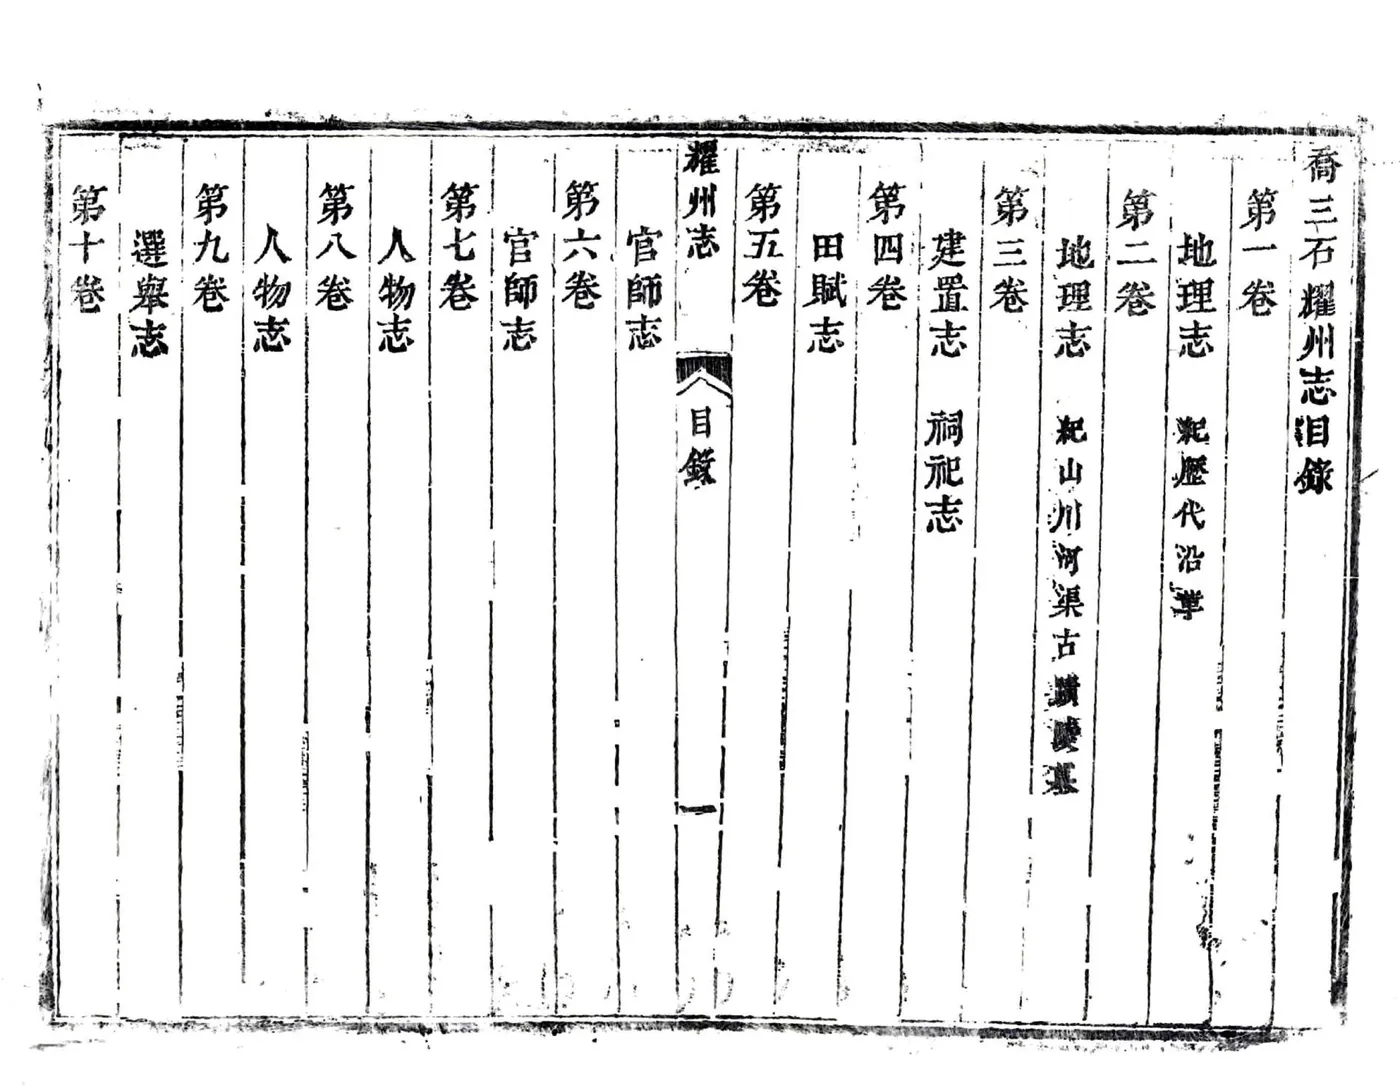 喬三石耀州志目錄
第一卷
地理志 紀歷代沿革
第二卷
地理志 紀山川河渠古蹟陵墓
第三卷
建置志 祠祀志
第四卷
田賦志
第五卷
耀州志 目錄 一
官師志
第六卷
官師志
第七卷
人物志
第八卷
人物志
第九卷
選舉志
第十卷